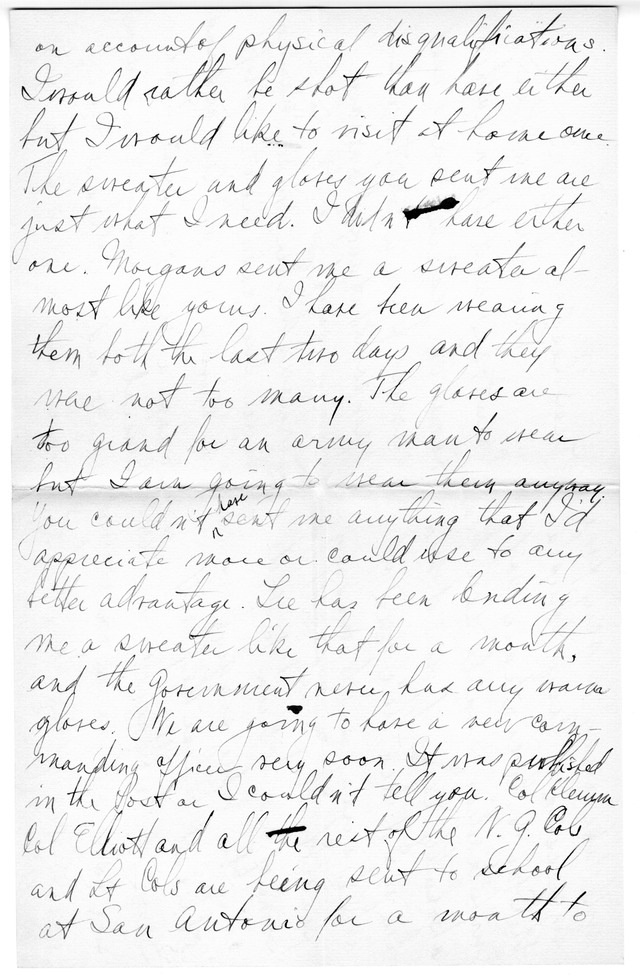 on account of physical disqualifications.
I would rather be shot than have either
but I would like to visit at home one.
The sweater and gloves you sent me are
just what I need. I didn't have either
one. Morgans sent me a sweater al-
most like yours. I have been wearing
them both the last two days and they
were not too many. The gloves are
too grand for an army man to wear
but I am going to wear them anyway.
You couldn't have sent me anything that I'd
appreciate more or could use to any
better advantage. Lee has been lending
me a sweater like that for a month,
and the Government never has any warm
gloves. We are going to have a new com-
manding officer very soon. It was published
in the Post or I couldn't tell you. Col
Col Elliott and all the rest of the N. G. Cols
and Lt Cols are being sent to school
at San Antonio for a month to